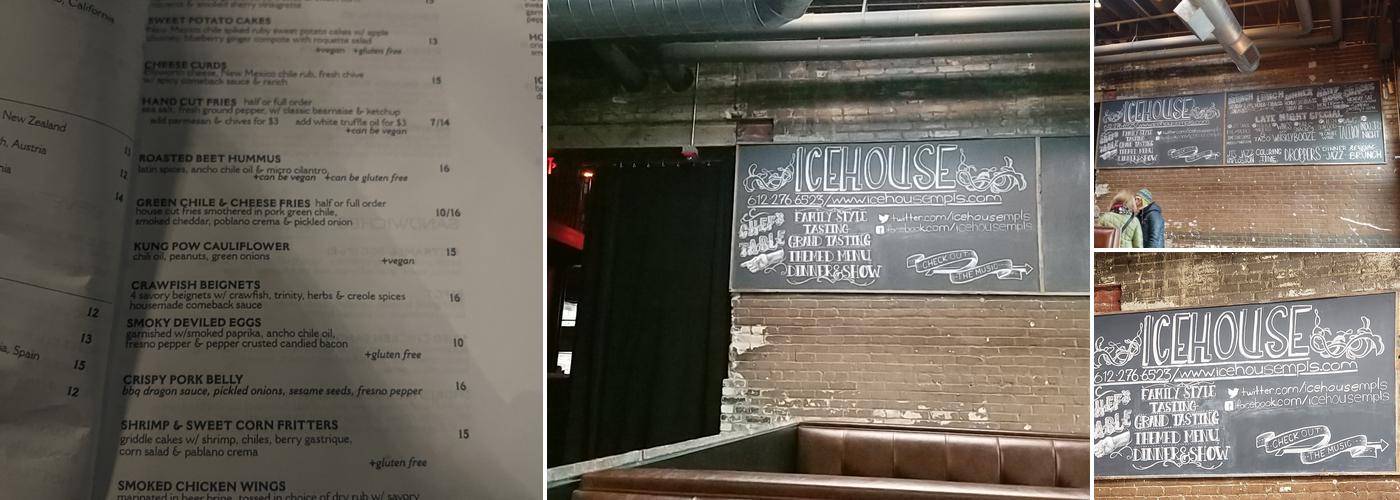 , California
New Zealand
h, Austria
13
12
14
12
13
ia, Spain
15
12
SWEET POTATO CAKES
New Mexico chile spiked ruby sweet potato cakes w/ apple
blueberry ginger compote with roquette salad 13
+vegan +gluten free
CHEESE CURDS
Ellsworth cheese, New Mexico chile rub, fresh chive 15
w/ spicy comeback sauce & ranch
HAND CUT FRIES half or full order
sea salt, fresh ground pepper, w/ classic bearnaise & ketchup
add parmesan & chives for $3 add white truffle oil for $3 7/14
+can be vegan
ROASTED BEET HUMMUS
latin spices, ancho chile oil & micro cilantro, 16
+can be vegan +can be gluten free
GREEN CHILE & CHEESE FRIES half or full order
house cut fries smothered in pork green chile, 10/16
smoked cheddar, poblano crema & pickled onion
KUNG POW CAULIFLOWER
chili oil, peanuts, green onions 15
+vegan
CRAWFISH BEIGNETS
4 savory beignets w/ crawfish, trinity, herbs & creole spices 16
housemade comeback sauce
SMOKY DEVILED EGGS
garnished w/smoked paprika, ancho chile oil,
fresno pepper & pepper crusted candied bacon 10
+gluten free
CRISPY PORK BELLY
bbq dragon sauce, pickled onions, sesame seeds, fresno pepper 16
SHRIMP & SWEET CORN FRITTERS
griddle cakes w/ shrimp, chiles, berry gastrique, 15
corn salad & pablano crema
+gluten free
SMOKED CHICKEN WINGS
marinated in beer brine, tossed in choice of dry rub w/ savory
ICEHOUSE
612·276·6523/www.icehousempls.com
CHEF'S TABLE
FAMILY STYLE
TASTING
GRAND TASTING
THEMED MENU
DINNER&SHOW
twitter.com/icehousempls
facebook.com/icehousempls
CHECK OUT
·THE MUSIC·
ICEHOUSE
FAMILY STYLE
TASTING
GRAND TASTING
THEMED MENU
DINNER&SHOW
BRUNCH LUNCH DINNER
LATE NIGHT SPECIAL
COLORING TIME
DROPPERS
JAZZ BRUNCH
ICEHOUSE
612·276·6523/www.icehousempls.com
CHEF'S TABLE
FAMILY STYLE
TASTING
GRAND TASTING
THEMED MENU
DINNER&SHOW
twitter.com/icehousempls
facebook.com/icehousempls
CHECK OUT
·THE MUSIC·